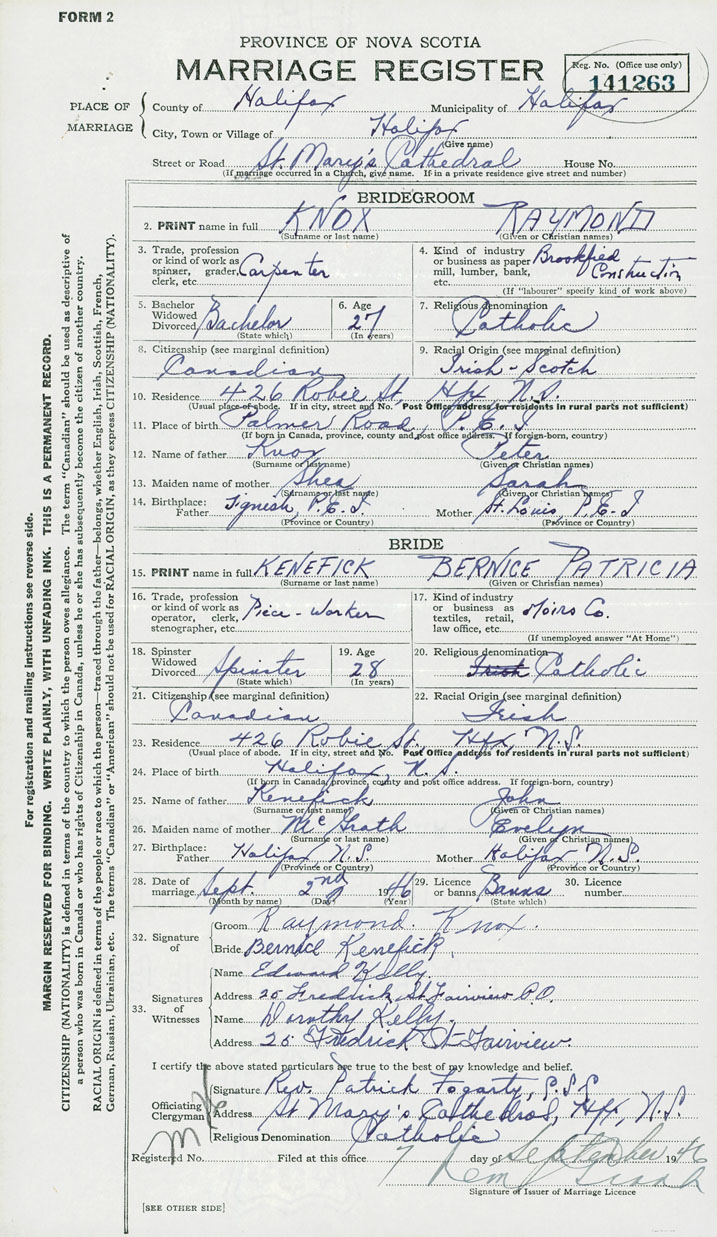 FORM 2
PROVINCE OF NOVA SCOTIA
MARRIAGE REGISTER
Reg. No. (Office use only)
141263
PLACE OF MARRIAGE
County of Halifax Municipality of Halifax
City, Town or Village of Halifax
(Give name)
Street or Road St. Mary's Cathedral House No.
(If marriage occurred in a Church, give name. If in a private residence give street and number)
BRIDEGROOM
2. PRINT name in full KNOX RAYMOND
(Surname or last name) (Given or Christian names)
3. Trade, profession or kind of work as spinner, grader, clerk, etc. Carpenter
4. Kind of industry or business as paper mill, lumber, bank, etc. Brookfield Construction
(If "labourer" specify kind of work above)
5. Bachelor Widowed Divorced Bachelor
(State which)
6. Age 27
(In years)
7. Religious denomination
Catholic
8. Citizenship (see marginal definition)
Canadian
9. Racial Origin (see marginal definition)
Irish-Scotch
10. Residence 426 Robie St. Hfx N.S.
(Usual place of abode. If in city, street and No. Post Office address for residents in rural parts not sufficient)
11. Place of birth Palmer Road, P.E.I
(If born in Canada, province, county and post office address. If foreign-born, country)
12. Name of father Knox Peter
(Surname or last name) (Given or Christian names)
13. Maiden name of mother Shea Sarah
(Surname or last name) (Given or Christian names)
14. Birthplace: Father Tignish, P.E.I Mother St. Louis, P.E.I
(Province or Country) (Province or Country)
BRIDE
15. PRINT name in full KENEFICK BERNICE PATRICIA
(Surname or last name) (Given or Christian names)
16. Trade, profession or kind of work as operator, clerk, stenographer, etc. Piece-Worker
17. Kind of industry or business as textiles, retail, law office, etc. Moirs Co.
(If unemployed answer "At Home")
18. Spinster Widowed Divorced Spinster
(State which)
19. Age 28
(In years)
20. Religious denomination
Irish Catholic
21. Citizenship (see marginal definition)
Canadian
22. Racial Origin (see marginal definition)
Irish
23. Residence 426 Robie St., Hfx, N.S.
(Usual place of abode. If in city, street and No. Post Office address for residents in rural parts not sufficient)
24. Place of birth Halifax, N.S.
(If born in Canada, province, county and post office address. If foreign-born, country)
25. Name of father Kenefick John
(Surname or last name) (Given or Christian names)
26. Maiden name of mother McGrath Evelyn
(Surname or last name) (Given or Christian names)
27. Birthplace: Father Halifax, N.S. Mother Halifax, N.S.
(Province or Country) (Province or Country)
28. Date of marriage Sept. 2nd 1946
(Month by name) (Day) (Year)
29. Licence or banns Banns
(State which)
30. Licence number
32. Signature of
Groom Raymond Knox.
Bride Bernice Kenefick
33. Signatures of Witnesses
Name Edward Kelly
Address 25 Fredrick St Fairview P.O.
Name Dorothy Kelly.
Address 25 Fredrick St Fairview.
I certify the above stated particulars are true to the best of my knowledge and belief.
Officiating Clergyman
Signature Rev. Patrick Fogarty, P.S.S
Address St Mary's Cathedral, Hfx, N.S.
Religious Denomination Catholic
Registered No. Filed at this office 7 day of September 1946
Signature of Issuer of Marriage Licence
[SEE OTHER SIDE]
For registration and mailing instructions see reverse side.
MARGIN RESERVED FOR BINDING. WRITE PLAINLY, WITH UNFADING INK. THIS IS A PERMANENT RECORD.
CITIZENSHIP (NATIONALITY) is defined in terms of the country to which the person owes allegiance. The term "Canadian" should be used as descriptive of
a person who was born in Canada or who has rights of Citizenship in Canada, unless he or she has subsequently become the citizen of another country.
RACIAL ORIGIN is defined in terms of the people or race to which the person—traced through the father—belongs, whether English, Irish, Scottish, French,
German, Russian, Ukrainian, etc. The terms "Canadian" or "American" should not be used for RACIAL ORIGIN, as they express CITIZENSHIP (NATIONALITY).